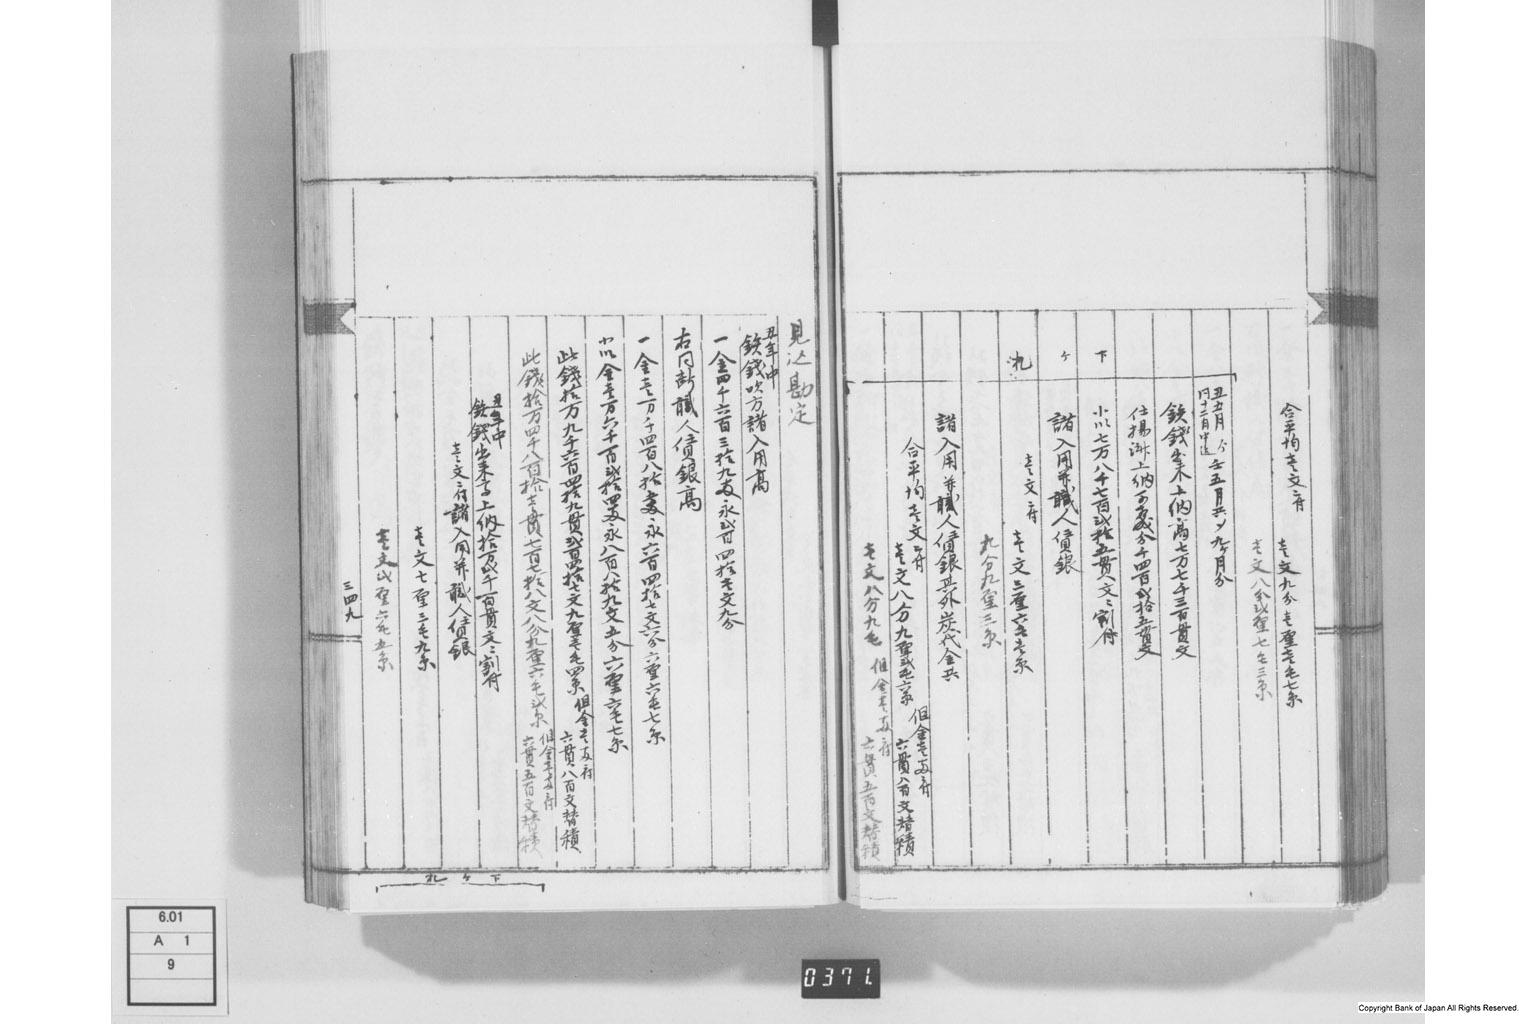 合平均壱文ニ付
壱文九分壱厘壱毛七糸
壱文八分弐厘七毛三糸
下ケ札
丑五月ゟ
同十二月中迄
壬五月共〆九ケ月分
鉄銭出来上納高七万七千三百貫文
仕揚済上納可成分千四百弐拾五貫文
小以七万八千七百弐拾五貫文ニ割付
諸入用并職人償銀
壱文ニ付
壱文三厘六毛壱糸
九分九厘三糸
諸入用并職人償銀其外炭代金共
合平均壱文ニ付
壱文八分九厘弐毛六糸
但金壱両ニ付
六貫八百文替積
壱文八分九毛
但金壱両ニ付
六貫五百文替積
見込勘定
丑年中
鉄銭吹方諸入用高
一金四千六百三拾九両永弐百四拾壱文九分
右同断職人償銀高
一金壱万千四百八拾五両永六百四拾七文六分六厘六毛七糸
小以金壱万六千百弐拾四両永八百八拾九文五分六厘六毛七糸
此銭拾万九千六百四拾九貫弐百四拾七文九厘壱毛四糸
但金壱両ニ付
六貫八百文替積
此銭拾万四千八百拾壱貫七百七拾八文八分九厘六毛弐糸
但金壱両ニ付
六貫五百文替積
丑年中
鉄銭出来上納拾万弐千百貫文ニ割付
壱文ニ付諸入用并職人償銀
壱文七厘三毛九糸
壱文弐厘六毛五糸
三四九
下ケ札
6.01
A 1
9
0371.
Copyright Bank of Japan All Rights Reserved.